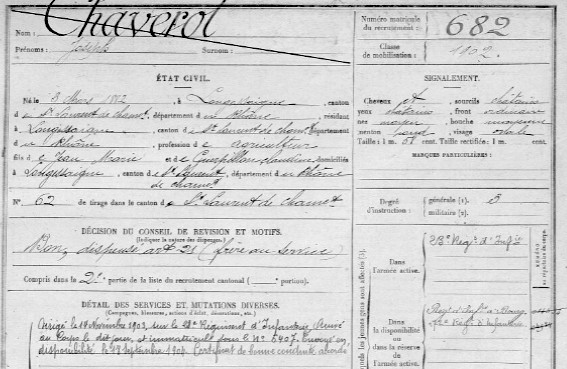 Nom : Chaverot
Prénoms : Joseph Surnom :
Numéro matricule du recrutement : 682
Classe de mobilisation : 1902
ÉTAT CIVIL.
Né le 3 Mars 1882, à Longessaigne, canton
d e St Laurent de Chamt, département d u Rhône, résidant
à Longessaigne, canton d e St Laurent de Chamt, département
d u Rhône, profession d agriculteur
fils d e Jean Marie et d e Claudine, domiciliés
à Longessaigne, canton d e St Laurent, département d u Rhône
de Chamt
N° 62 de tirage dans le canton d e St Laurent de Chamt
SIGNALEMENT.
Cheveux et sourcils châtains
yeux châtains, front ordinaire
nez moyen, bouche moyenne
menton rond, visage ovale
Taille : 1 m. cent. Taille rectifiée : 1 m. cent.
MARQUES PARTICULIÈRES :
Degré d'instruction : générale (1). 3
militaire (2).
DÉCISION DU CONSEIL DE REVISION ET MOTIFS.
(Indiquer la nature des dispenses.)
Bon, dispensé art (frère au service)
Compris dans la 2e partie de la liste du recrutement cantonal ( portion).
DÉTAIL DES SERVICES ET MUTATIONS DIVERSES.
(Campagnes, blessures, actions d'éclat, décorations, etc.)
Dirigé le 14 Novembre 1903, sur le Régiment d'Infanterie. Arrivé
au Corps le dit jour, et immatriculé sous le N° 5407. Envoyé en
disponibilité le Septembre 1904. Certificat de bonne conduite accordé
Dans l'armée active. Régt d'Infie
Dans la disponibilité ou dans la réserve de l'armée active. Régt d'Inf
Régt d'Infanterie